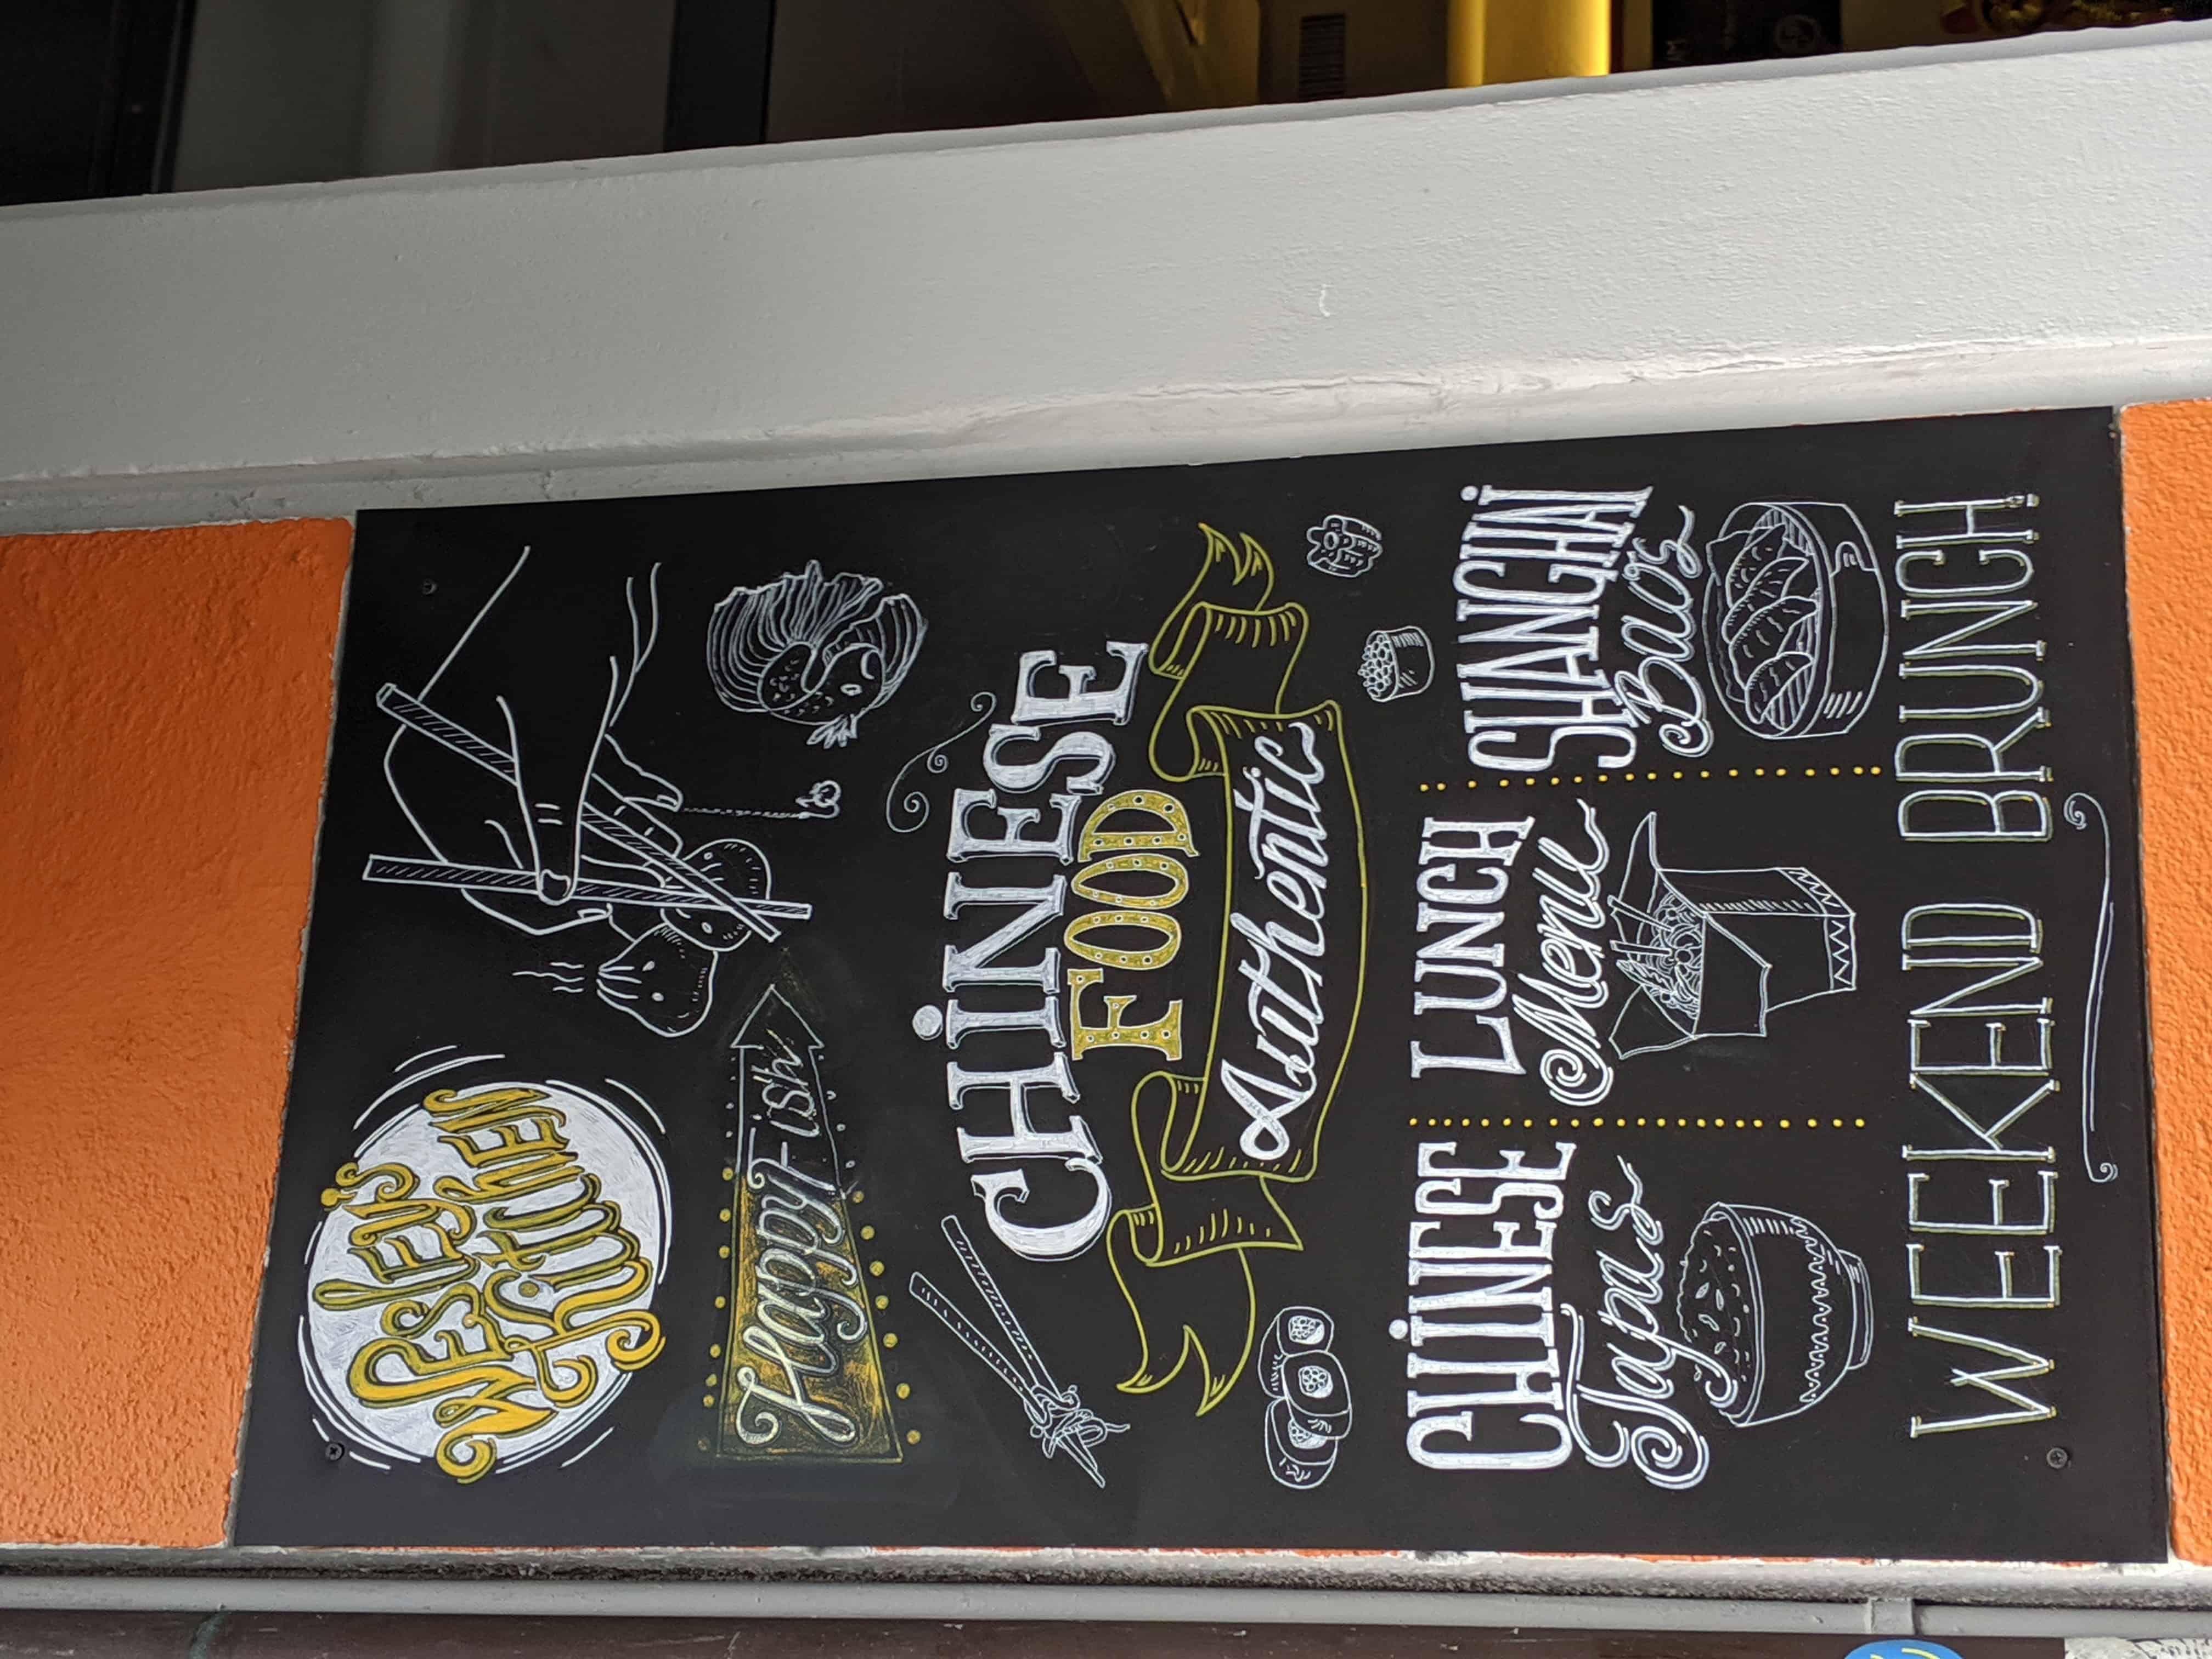 Wesley's
Kitchen
Happy-ish
CHINESE
FOOD
Authentic
CHINESE
Tapas
LUNCH
Menu
SHANGHAI
Baos
WEEKEND BRUNCH